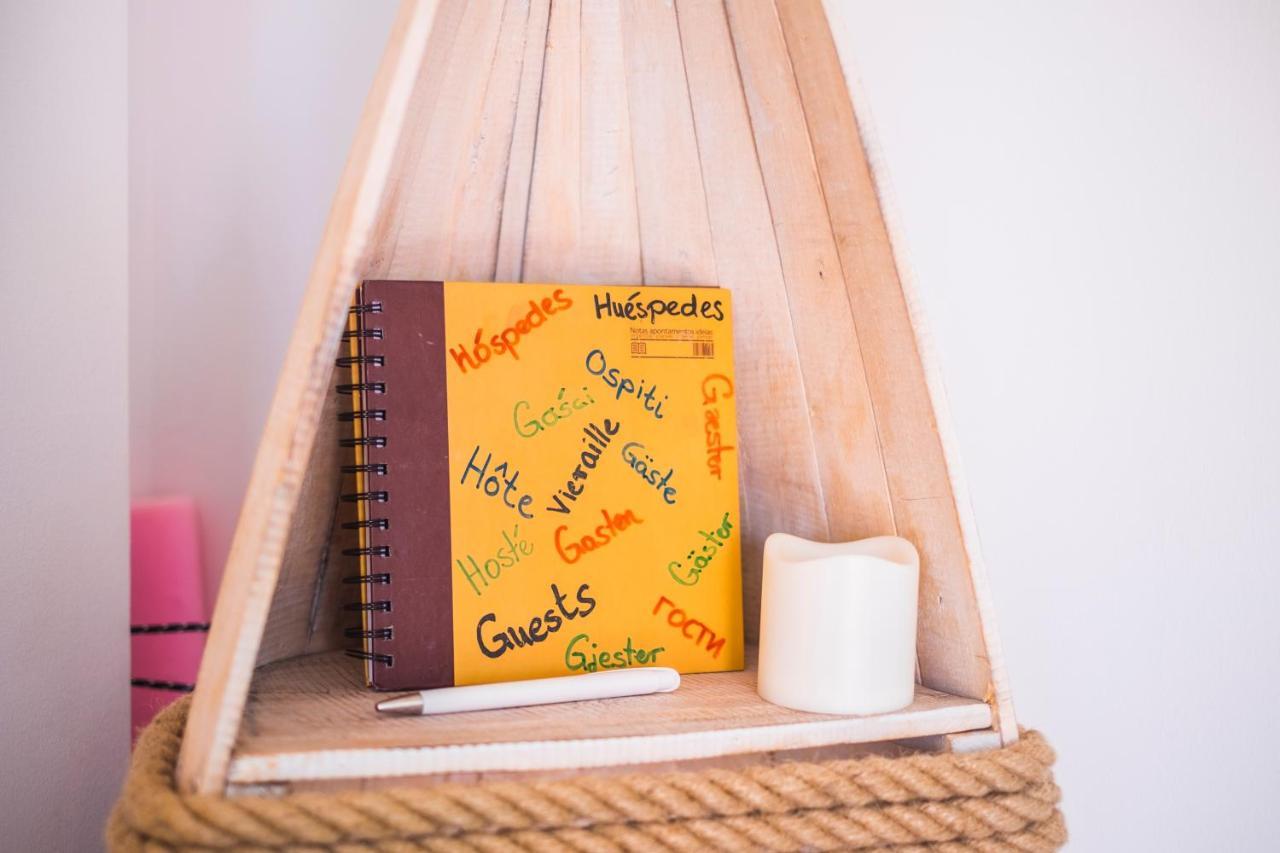 Huéspedes
Hóspedes
Notas apontamentos ideias
Ospiti
Gæstur
Gości
Vieraille
Gäste
Hôte
Gasten
Hosté
Gäster
Guests
гости
Gjester